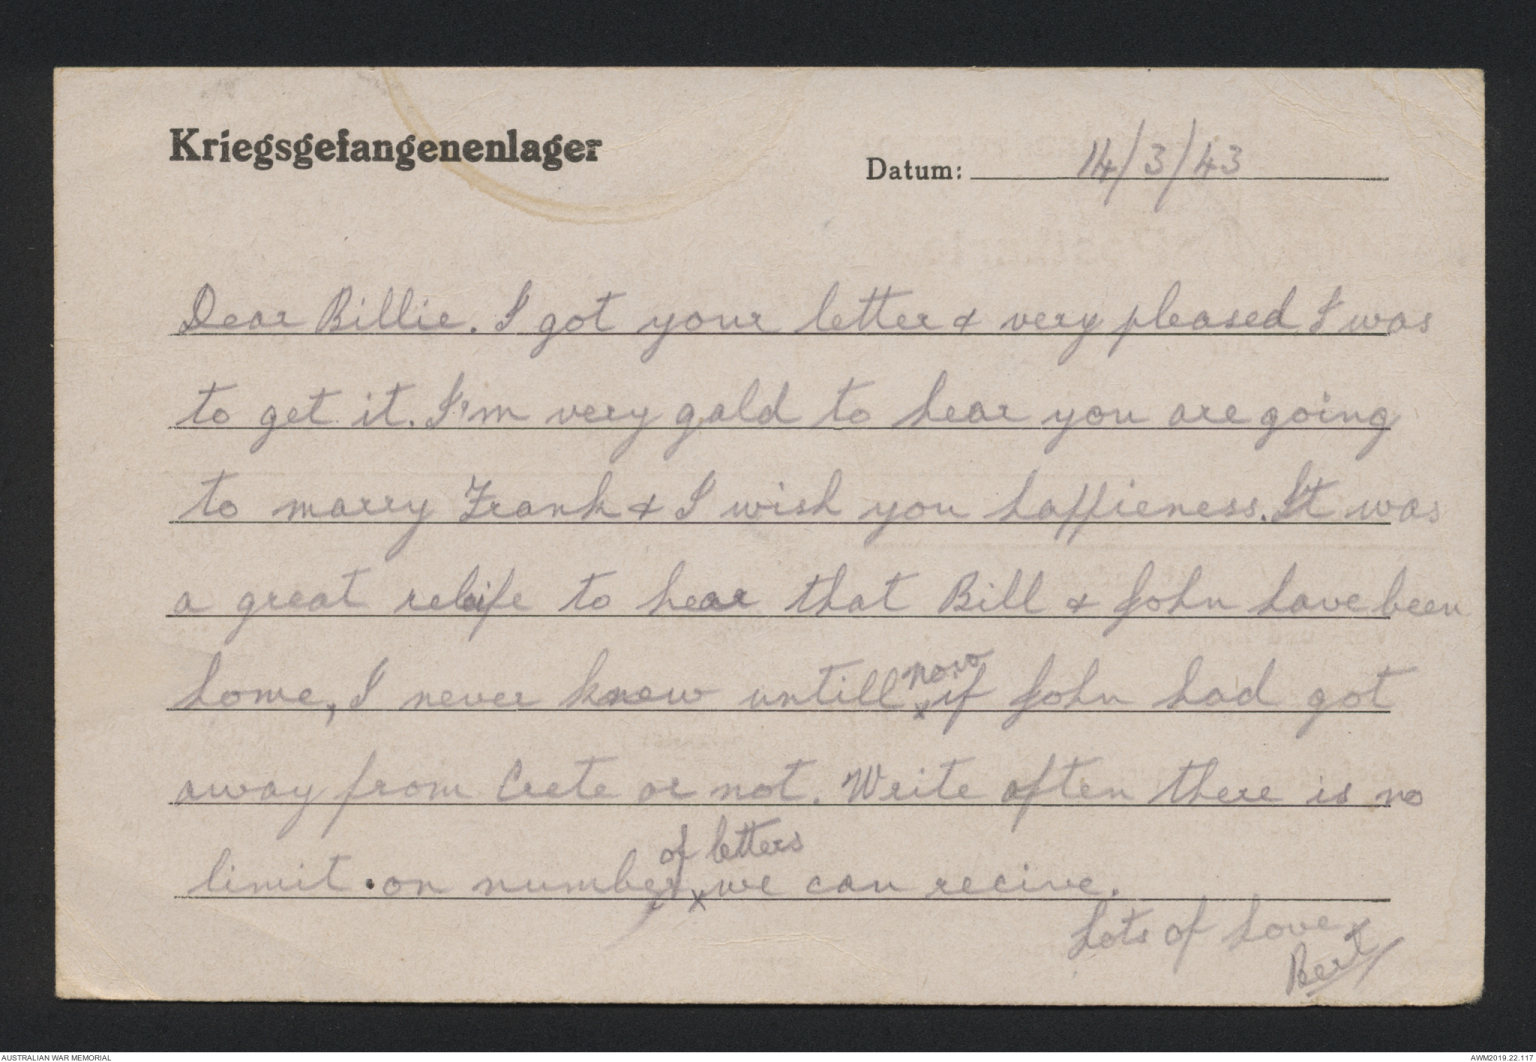 Kriegsgefangenenlager
Datum: 14/3/43
Dear Billie. I got your letter & very pleased I was
to get it. I'm very gald to hear you are going
to marry Frank & I wish you happieness. It was
a great releife to hear that Bill & John have been
home, I never knew untill now if John had got
away from Crete or not. Write often there is no
limit on number of letters we can recive.
Lots of Love
Bert
AUSTRALIAN WAR MEMORIAL
AWM2019.22.117